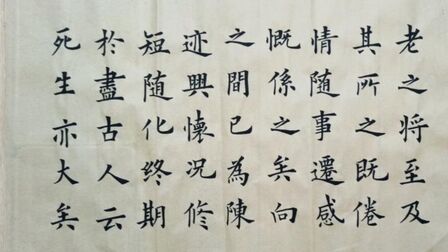 老之将至及
其所之既倦
情随事遷感
慨係之矣向
之間已為陳
迹興懷况修
短随化終期
於盡古人云
死生亦大矣